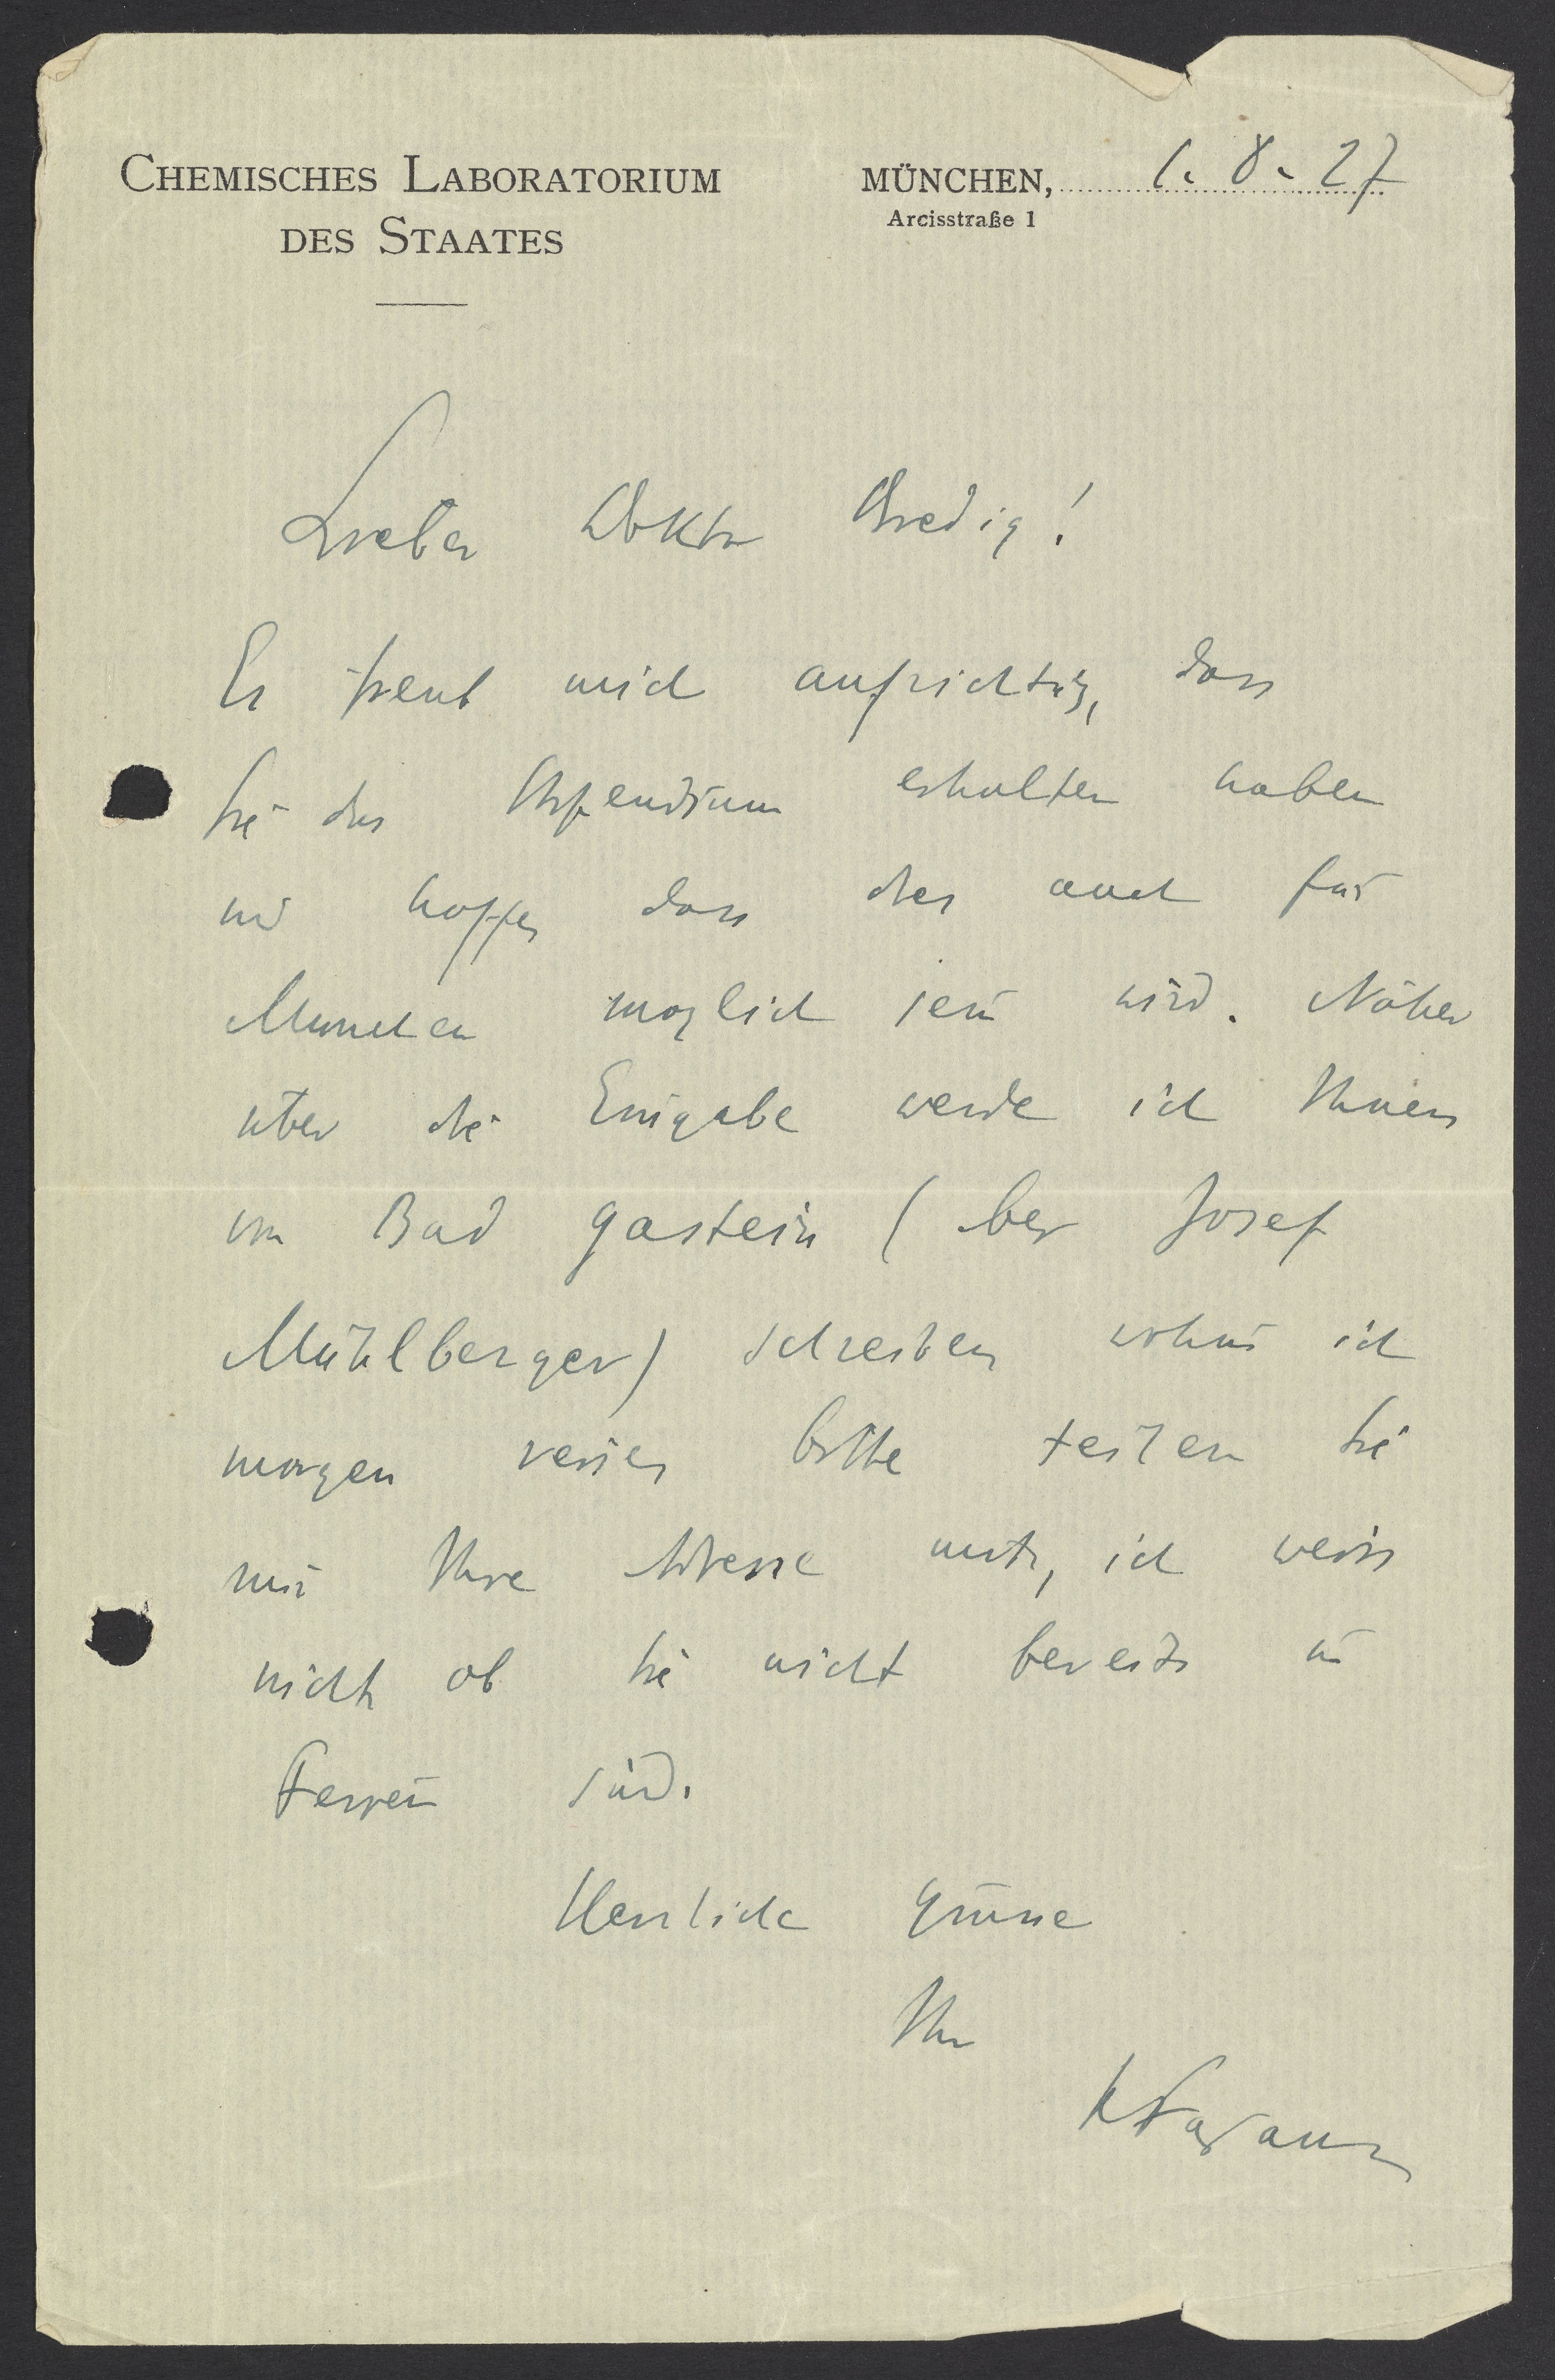 CHEMISCHES LABORATORIUM
DES STAATES
MÜNCHEN, 1. 8. 27
Arcisstraße 1
Lieber Doktor Bredig!
Es freut mich aufrichtig, dass
Sie das Stipendium erhalten haben
und hoffe, dass dies auch für
München möglich sein wird. Näher
über die Eingabe werde ich Ihnen
von Bad Gastein (bei Josef
Mühlberger) schreiben wohin ich
morgen reise, bitte teilen Sie
mir Ihre Adresse mit, ich weiss
nicht ob Sie nicht bereits in
Ferien sind.
Herzliche Grüsse
Ihr
K Fajans